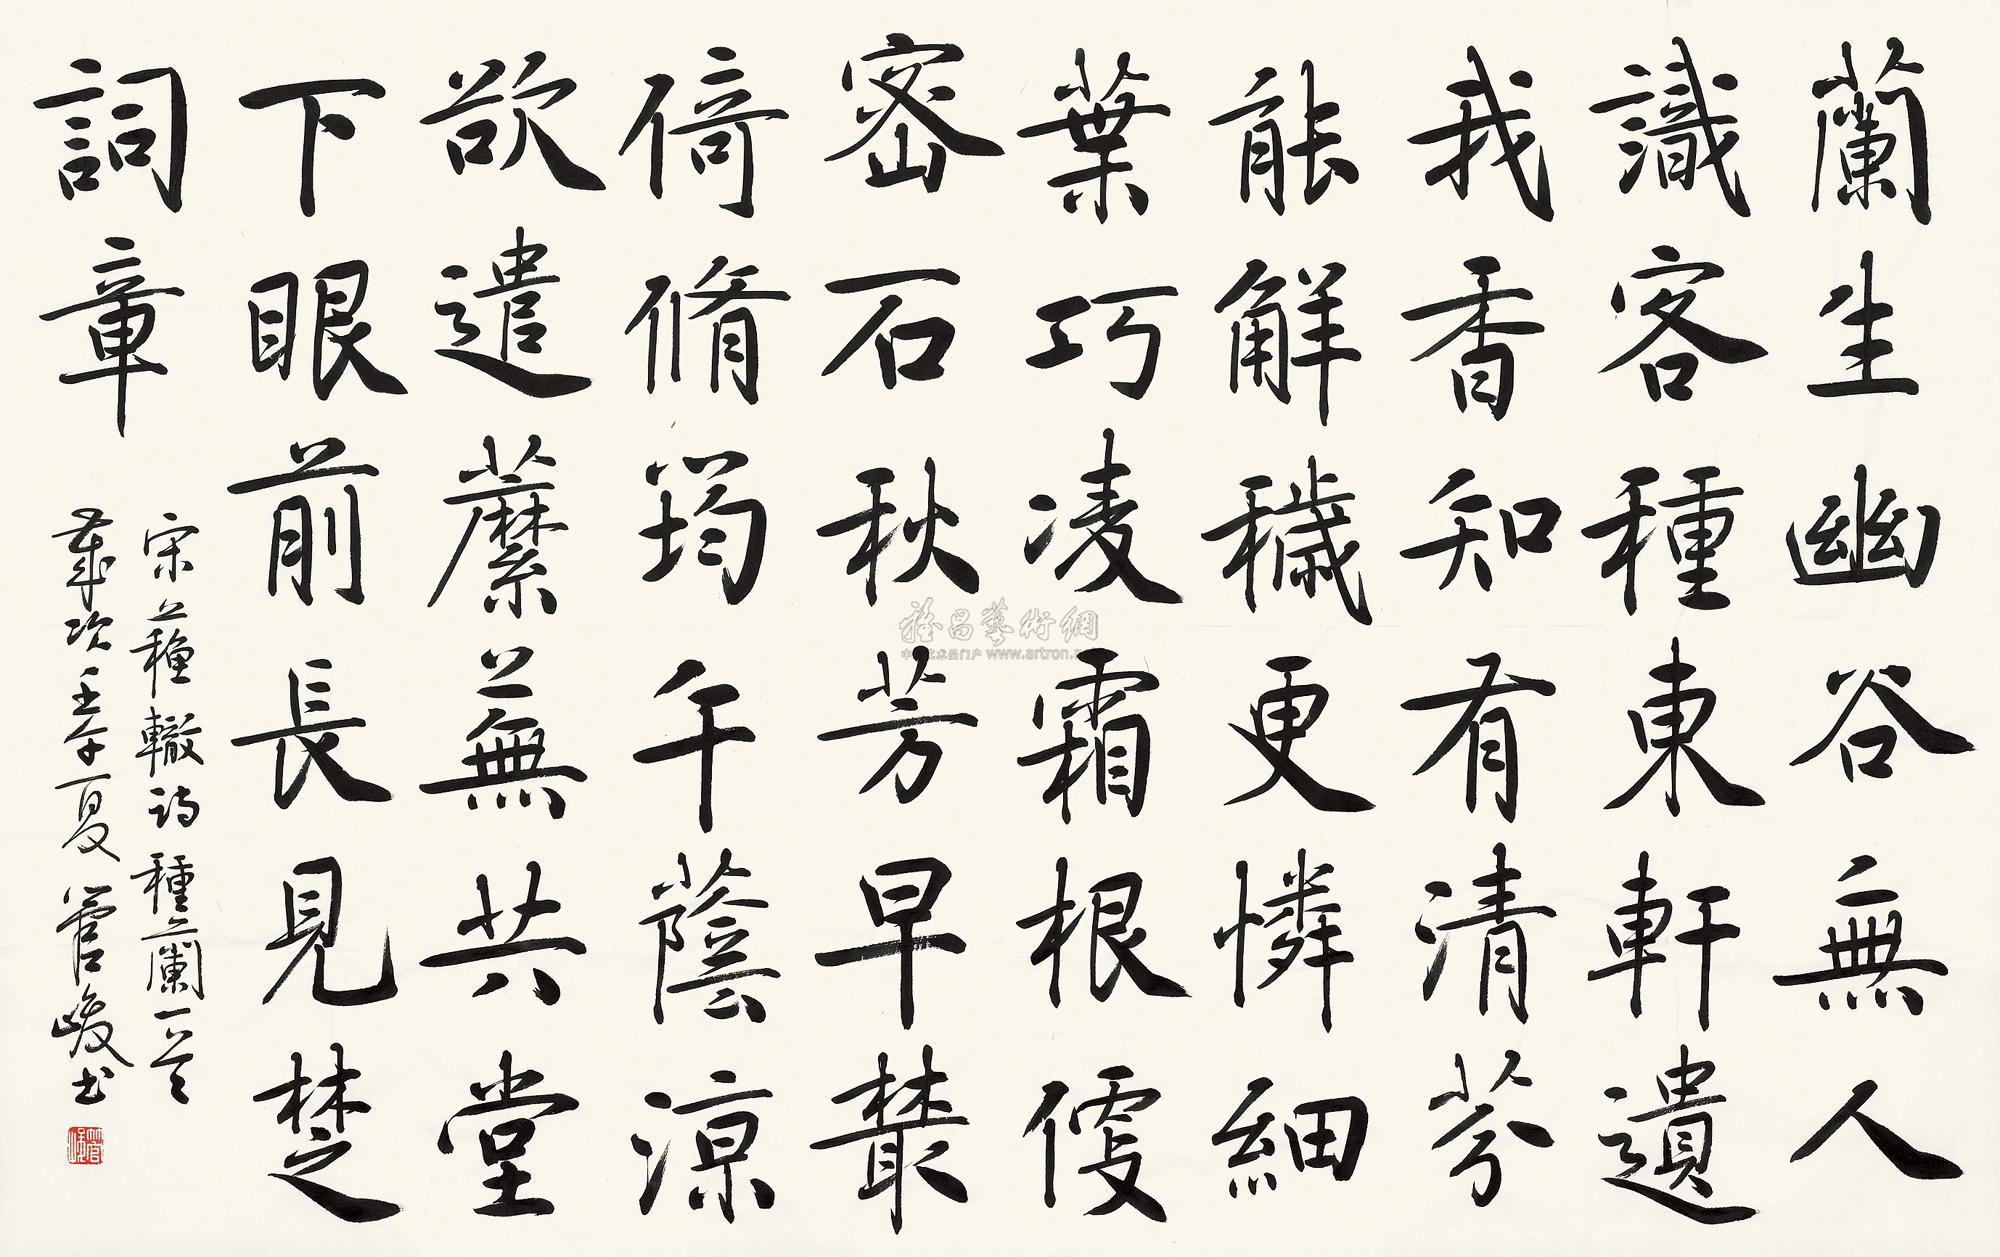 蘭生幽谷無人
識客種東軒遺
我香知有清芬
能解穢更憐細
葉巧凌霜根便
密石秋芳早叢
倚脩筠午蔭涼
欲遣蘼蕪共堂
下眼前長見楚
詞章
宋蘇轍詩種蘭一首
歲次壬午夏管峻书
管峻
雅昌藝術網
www.artron.n